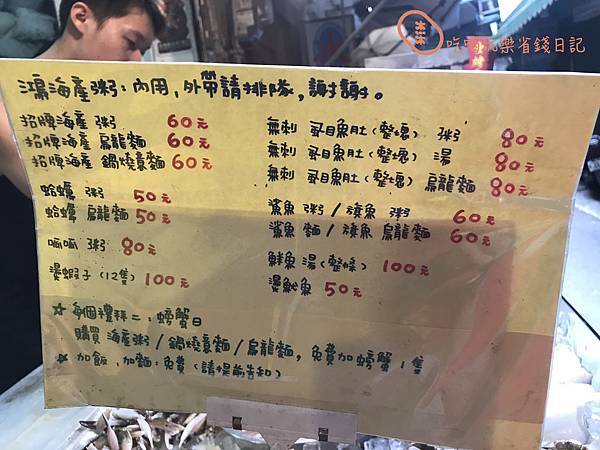 吃喝玩樂省錢日記
鴻海產粥：內用，外帶請排隊，謝謝。
招牌海產 粥 60元
招牌海產 烏龍麵 60元
招牌海產 鍋燒意麵 60元
蛤蠣 粥 50元
蛤蠣 烏龍麵 50元
呱呱 粥 80元
燙蝦子(12隻) 100元
無刺 虱目魚肚(整塊) 粥 80元
無刺 虱目魚肚(整塊) 湯 80元
無刺 虱目魚肚(整塊) 烏龍麵 80元
鯊魚 粥/旗魚 粥 60元
鯊魚 麵/旗魚 烏龍麵 60元
鮮魚 湯(整條) 100元
燙魷魚 50元
☆ 每個禮拜二：螃蟹日
購買 海產粥/鍋燒意麵/烏龍麵，免費加螃蟹1隻
☆ 加飯，加麵：免費(請提前告知)